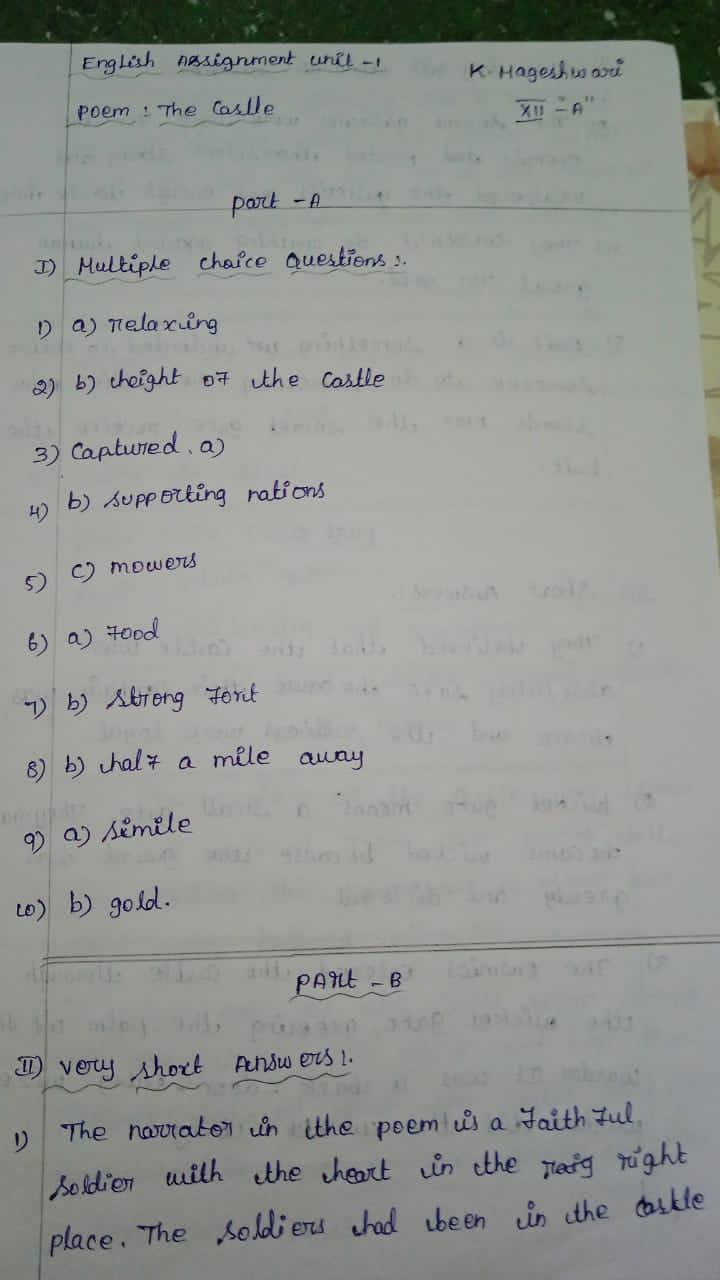 English Assignment unit -1
K. Hageshwari
Poem : The Castle
XII - "A"
Part - A
I) Multiple choice Questions :.
1) a) relaxing
2) b) height of the castle
3) Captured. a)
4) b) supporting nations
5) c) mowers
6) a) food
7) b) strong fort
8) b) half a mile away
9) a) simile
10) b) gold.
PArt - B
II) very short Answers :.
1) The narrator in the poem is a faithful
soldier with the heart in the right
place. The soldiers had been in the castle